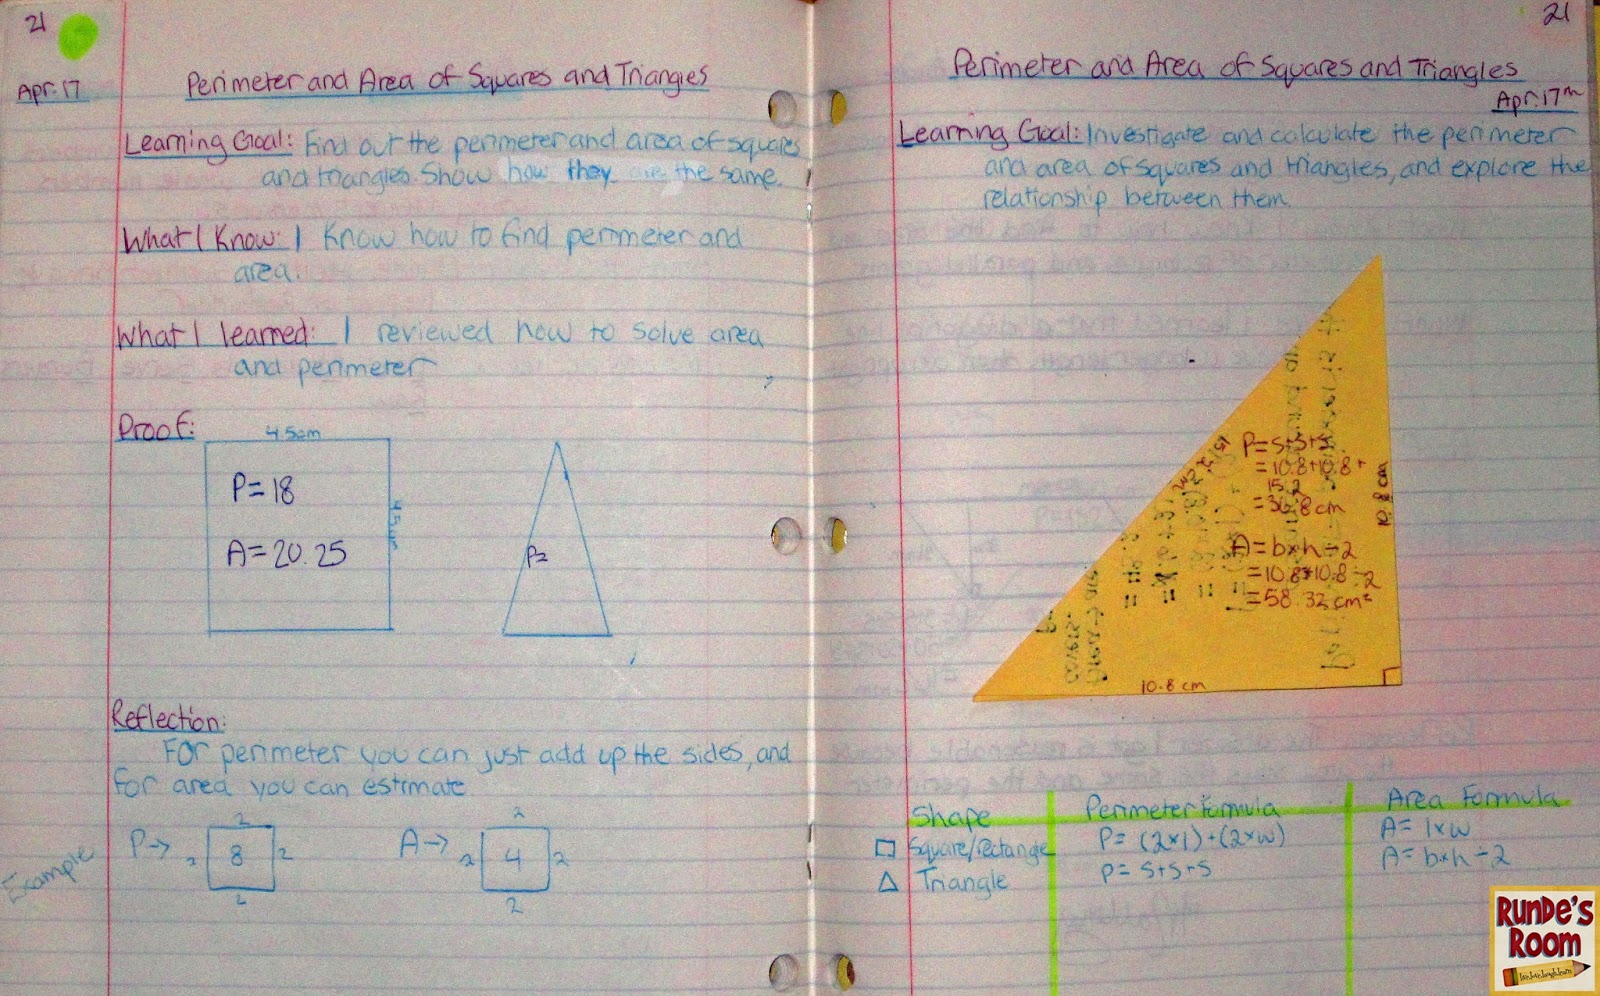 21
Apr. 17
Perimeter and Area of Squares and Triangles
Learning Goal: Find out the perimeter and area of squares
and triangles. Show how they are the same.
What I Know: I know how to find perimeter and
area.
What I learned: I reviewed how to solve area
and perimeter
Proof:
4.5cm
P= 18
4.5cm
A= 20.25
P=
Reflection:
For perimeter you can just add up the sides, and
for area you can estimate
Example
P→
2
2
8
2
2
A→
2
2
4
2
2
21
Perimeter and Area of Squares and Triangles
Apr. 17th
Learning Goal: Investigate and calculate the perimeter
and area of squares and triangles, and explore the
relationship between them.
P= s+s+s
= 10.8+10.8+
15.2
= 36.8cm
10.8 cm
A= b×h÷2
= 10.8×10.8÷2
= 58.32 cm²
10.8 cm
Shape
Perimeter Formula
Area Formula
Square/rectangle
P= (2×l)+(2×w)
A= l×w
Triangle
P= s+s+s
A= b×h÷2
RUNDE'S
ROOM